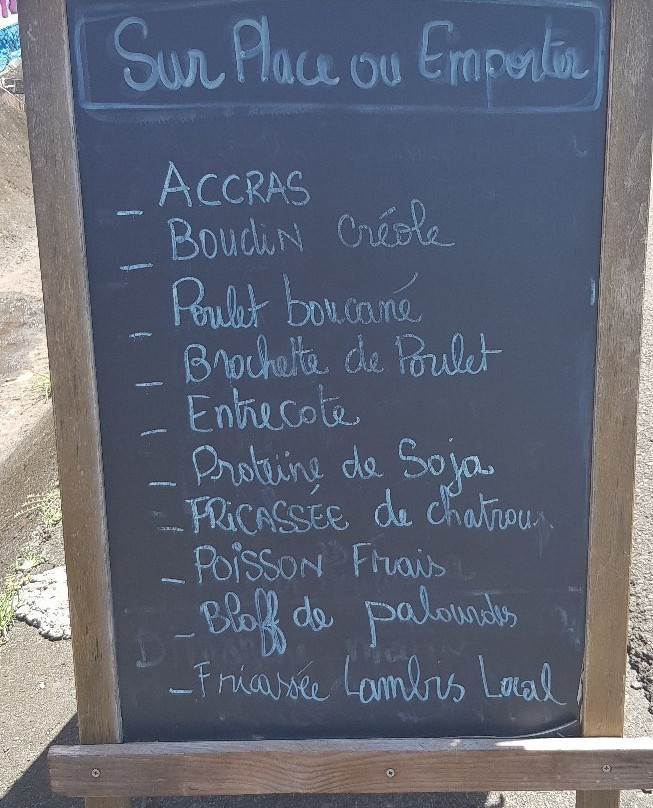 Sur Place ou Emporter
- ACCRAS
- BOUDIN Créole
- Poulet boucané
- Brochette de Poulet
- Entrecote
- Proteine de Soja
- FRICASSÉE de chatrou
- POISSON Frais
- Bloff de palourdes
- Fricassée Lambis Local